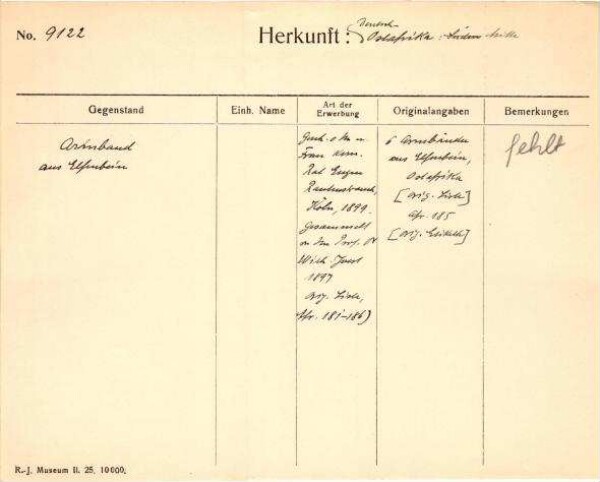 No. 9122
Herkunft: Deutsch-
Ostafrika:
Gegenstand
Einh. Name
Art der
Erwerbung
Originalangaben
Bemerkungen
Armband
aus Elfenbein
Gesch. d. Hrn u.
Frau Kom.
Rat Eugen
Rautenstrauch,
Köln, 1899.
Gesammelt
Prof. Dr
Wilh. Joest
1897
Orig. Liste,
Afr. 181-186)
6 Armbänder
aus Elfenbein,
Ostafrika
[Orig. Liste]
Afr. 185
[Orig. Etikette]
fehlt
R.-J. Museum II. 25. 10 000.